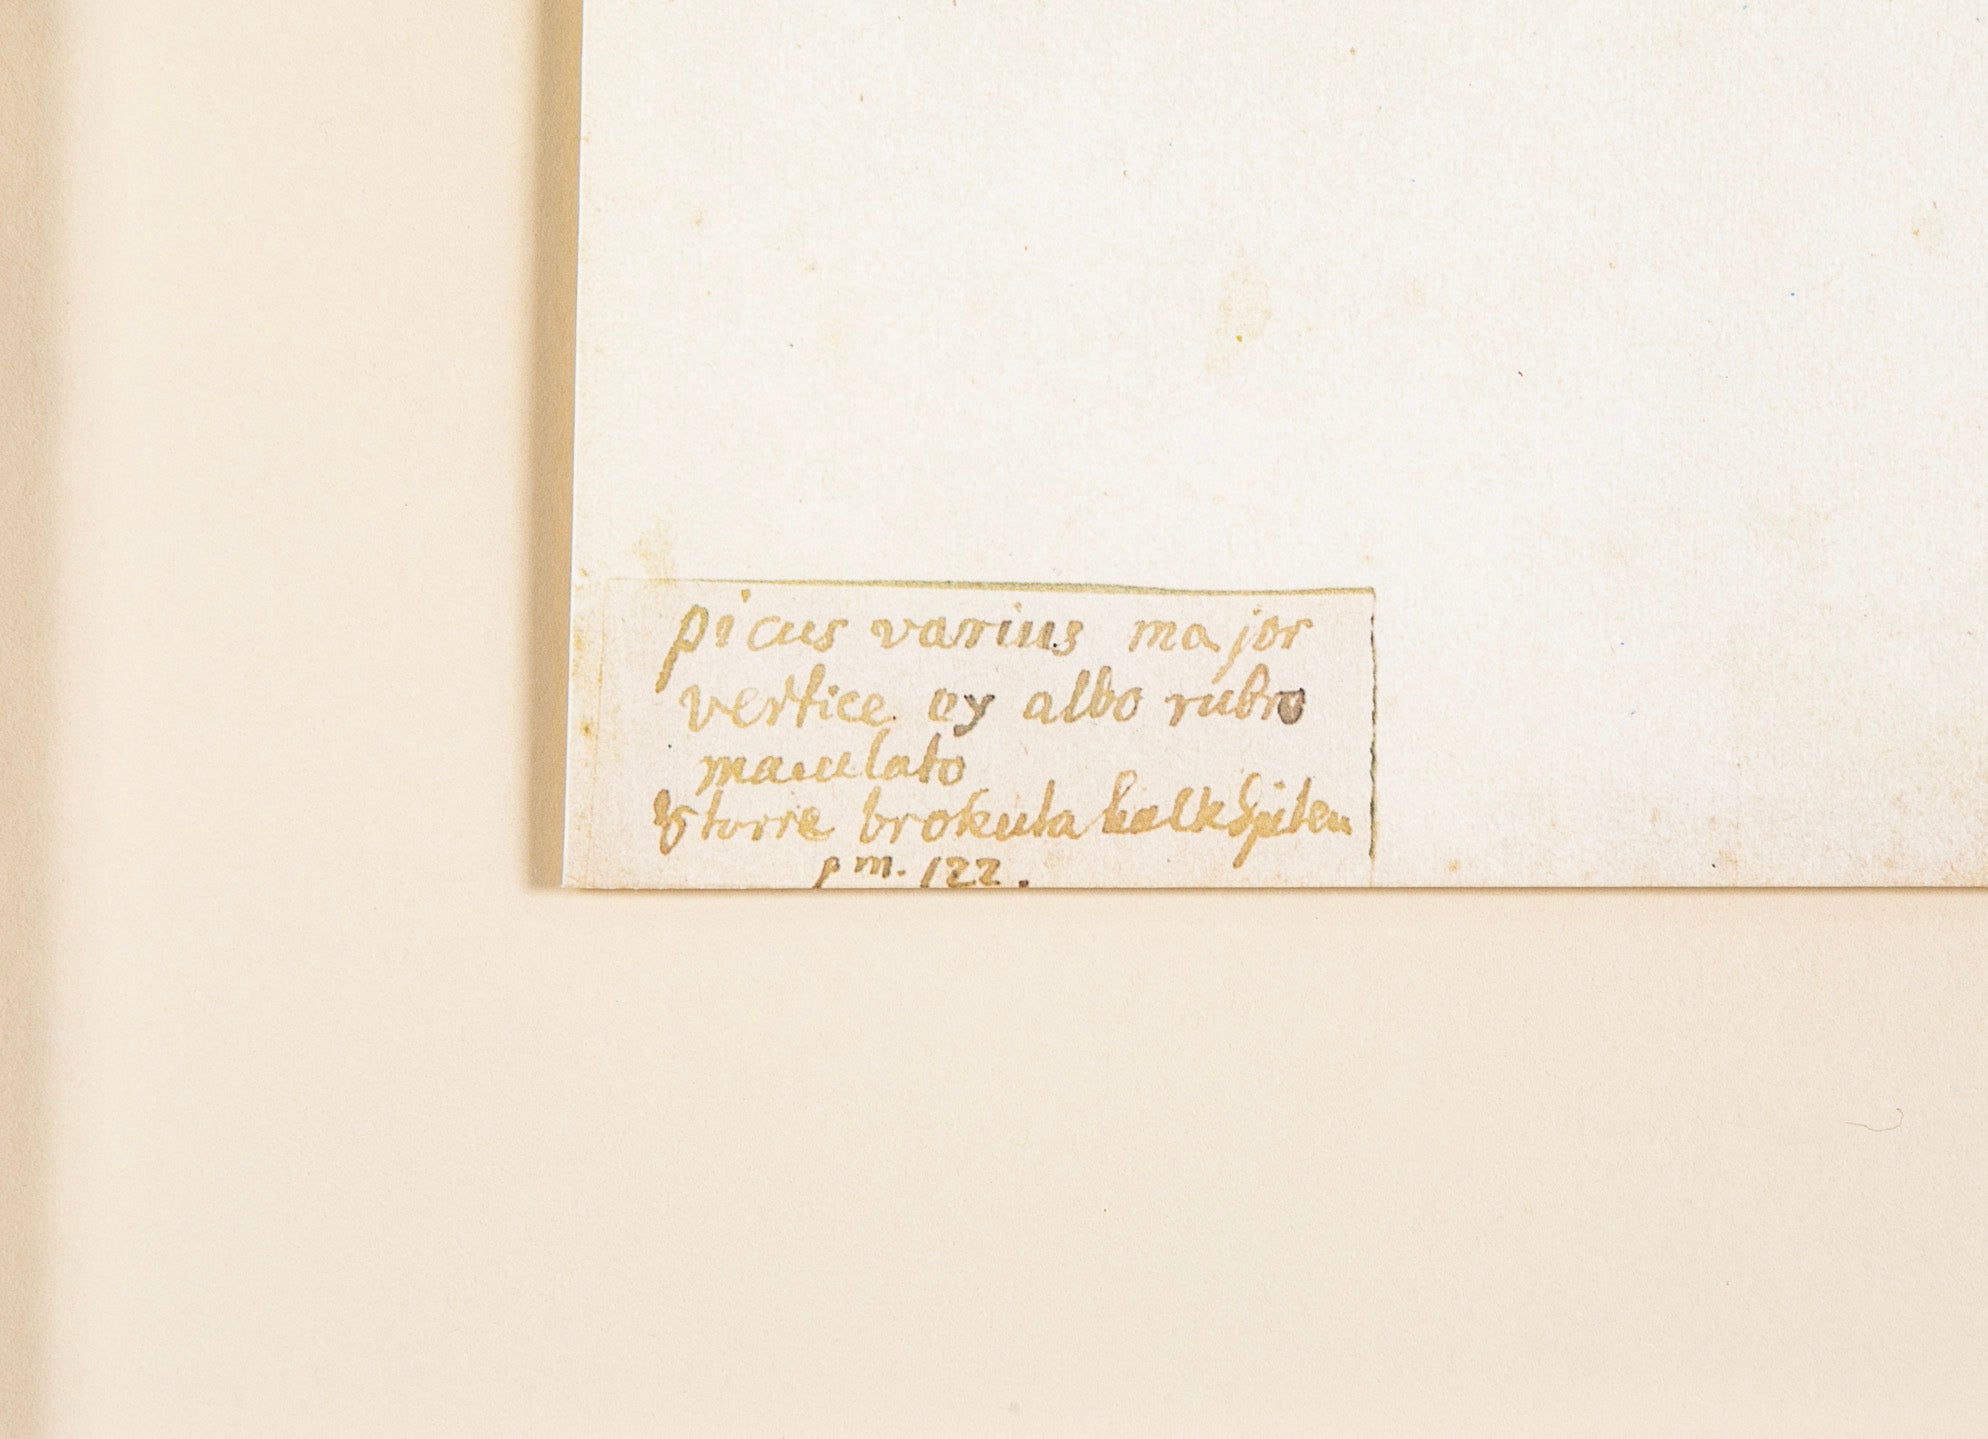 picus varius major
vertice ex albo rubro
maculato
Storre brokuta halkspiten
p m. 122.